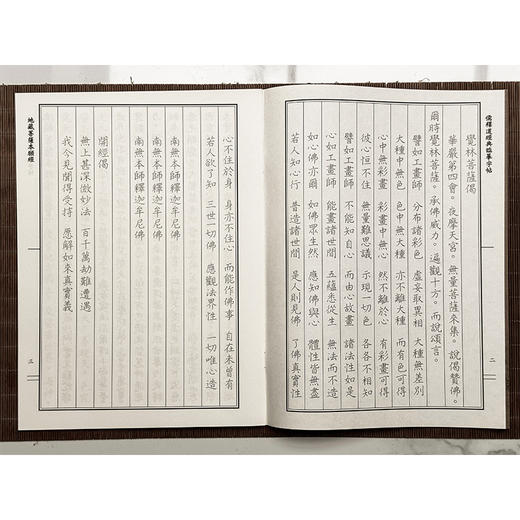 儒釋道經典臨摹字帖
二
覺林菩薩偈
華嚴第四會。夜摩天宮。無量菩薩來集。說偈贊佛。
爾時覺林菩薩。承佛威力。遍觀十方。而說頌言。
譬如工畫師 分布諸彩色 虛妄取異相 大種無差別
大種中無色 色中無大種 亦不離大種 而有色可得
心中無彩畫 彩畫中無心 然不離於心 有彩畫可得
彼心恒不住 無量難思議 示現一切色 各各不相知
譬如工畫師 不能知自心 而由心故畫 諸法性如是
心如工畫師 能畫諸世間 五蘊悉從生 無法而不造
如心佛亦爾 如佛眾生然 應知佛與心 體性皆無盡
若人知心行 普造諸世間 是人則見佛 了佛真實性
心不住於身 身亦不住心 而能作佛事 自在未曾有
若人欲了知 三世一切佛 應觀法界性 一切唯心造
南無本師釋迦牟尼佛
南無本師釋迦牟尼佛
南無本師釋迦牟尼佛
開經偈
無上甚深微妙法 百千萬劫難遭遇
我今見聞得受持 愿解如來真實義
地藏菩薩本願經
三